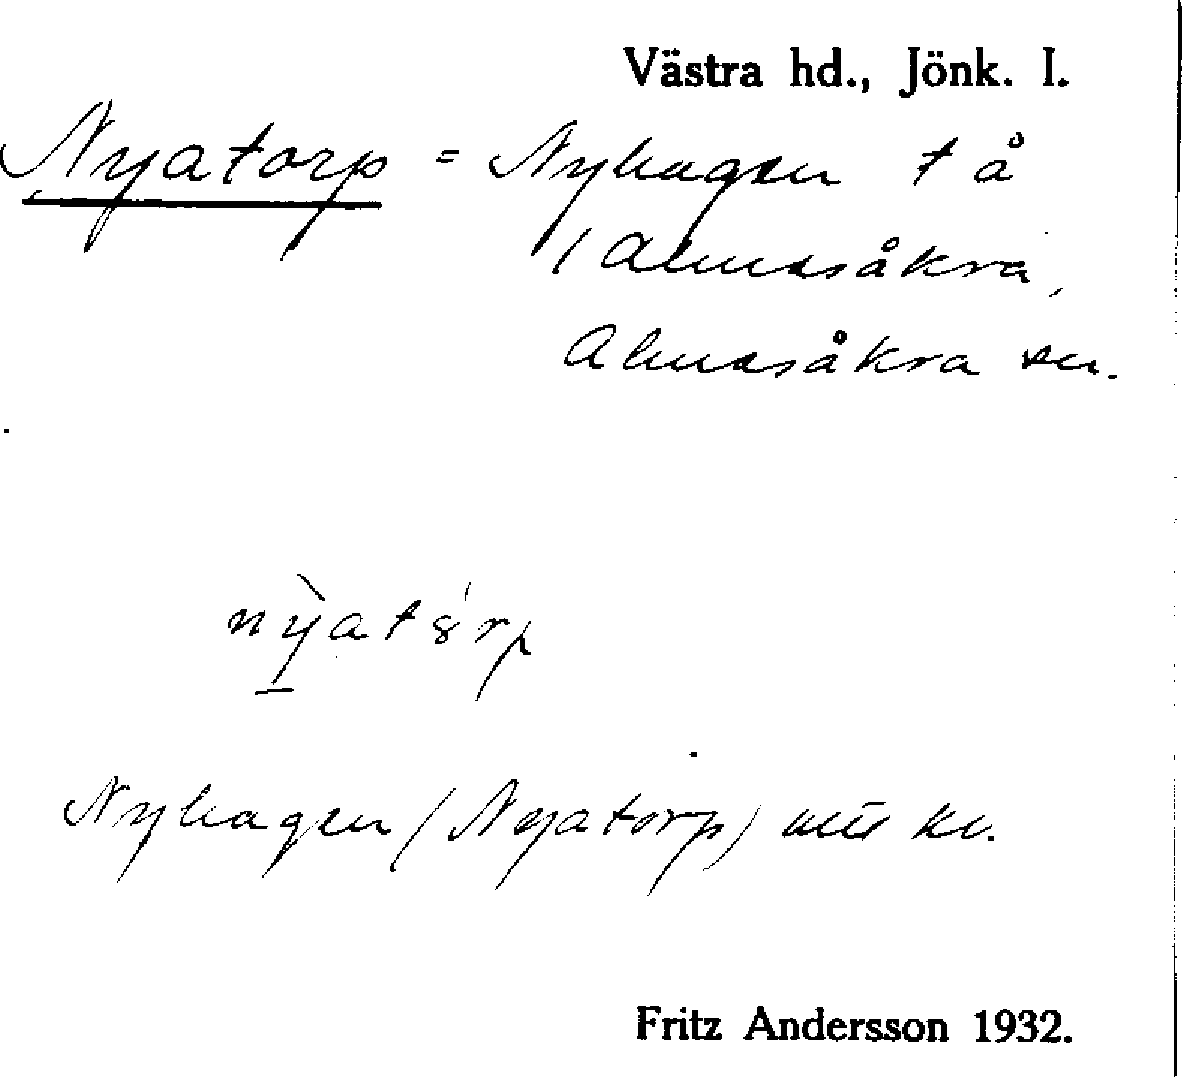 Västra hd., Jönk. l.
Nyatorp = Nyhagen t å
/ Almesåkra,
Almesåkra sn.
nỳatórp
Nyhagen (Nyatorp) kv.
Fritz Andersson 1932.